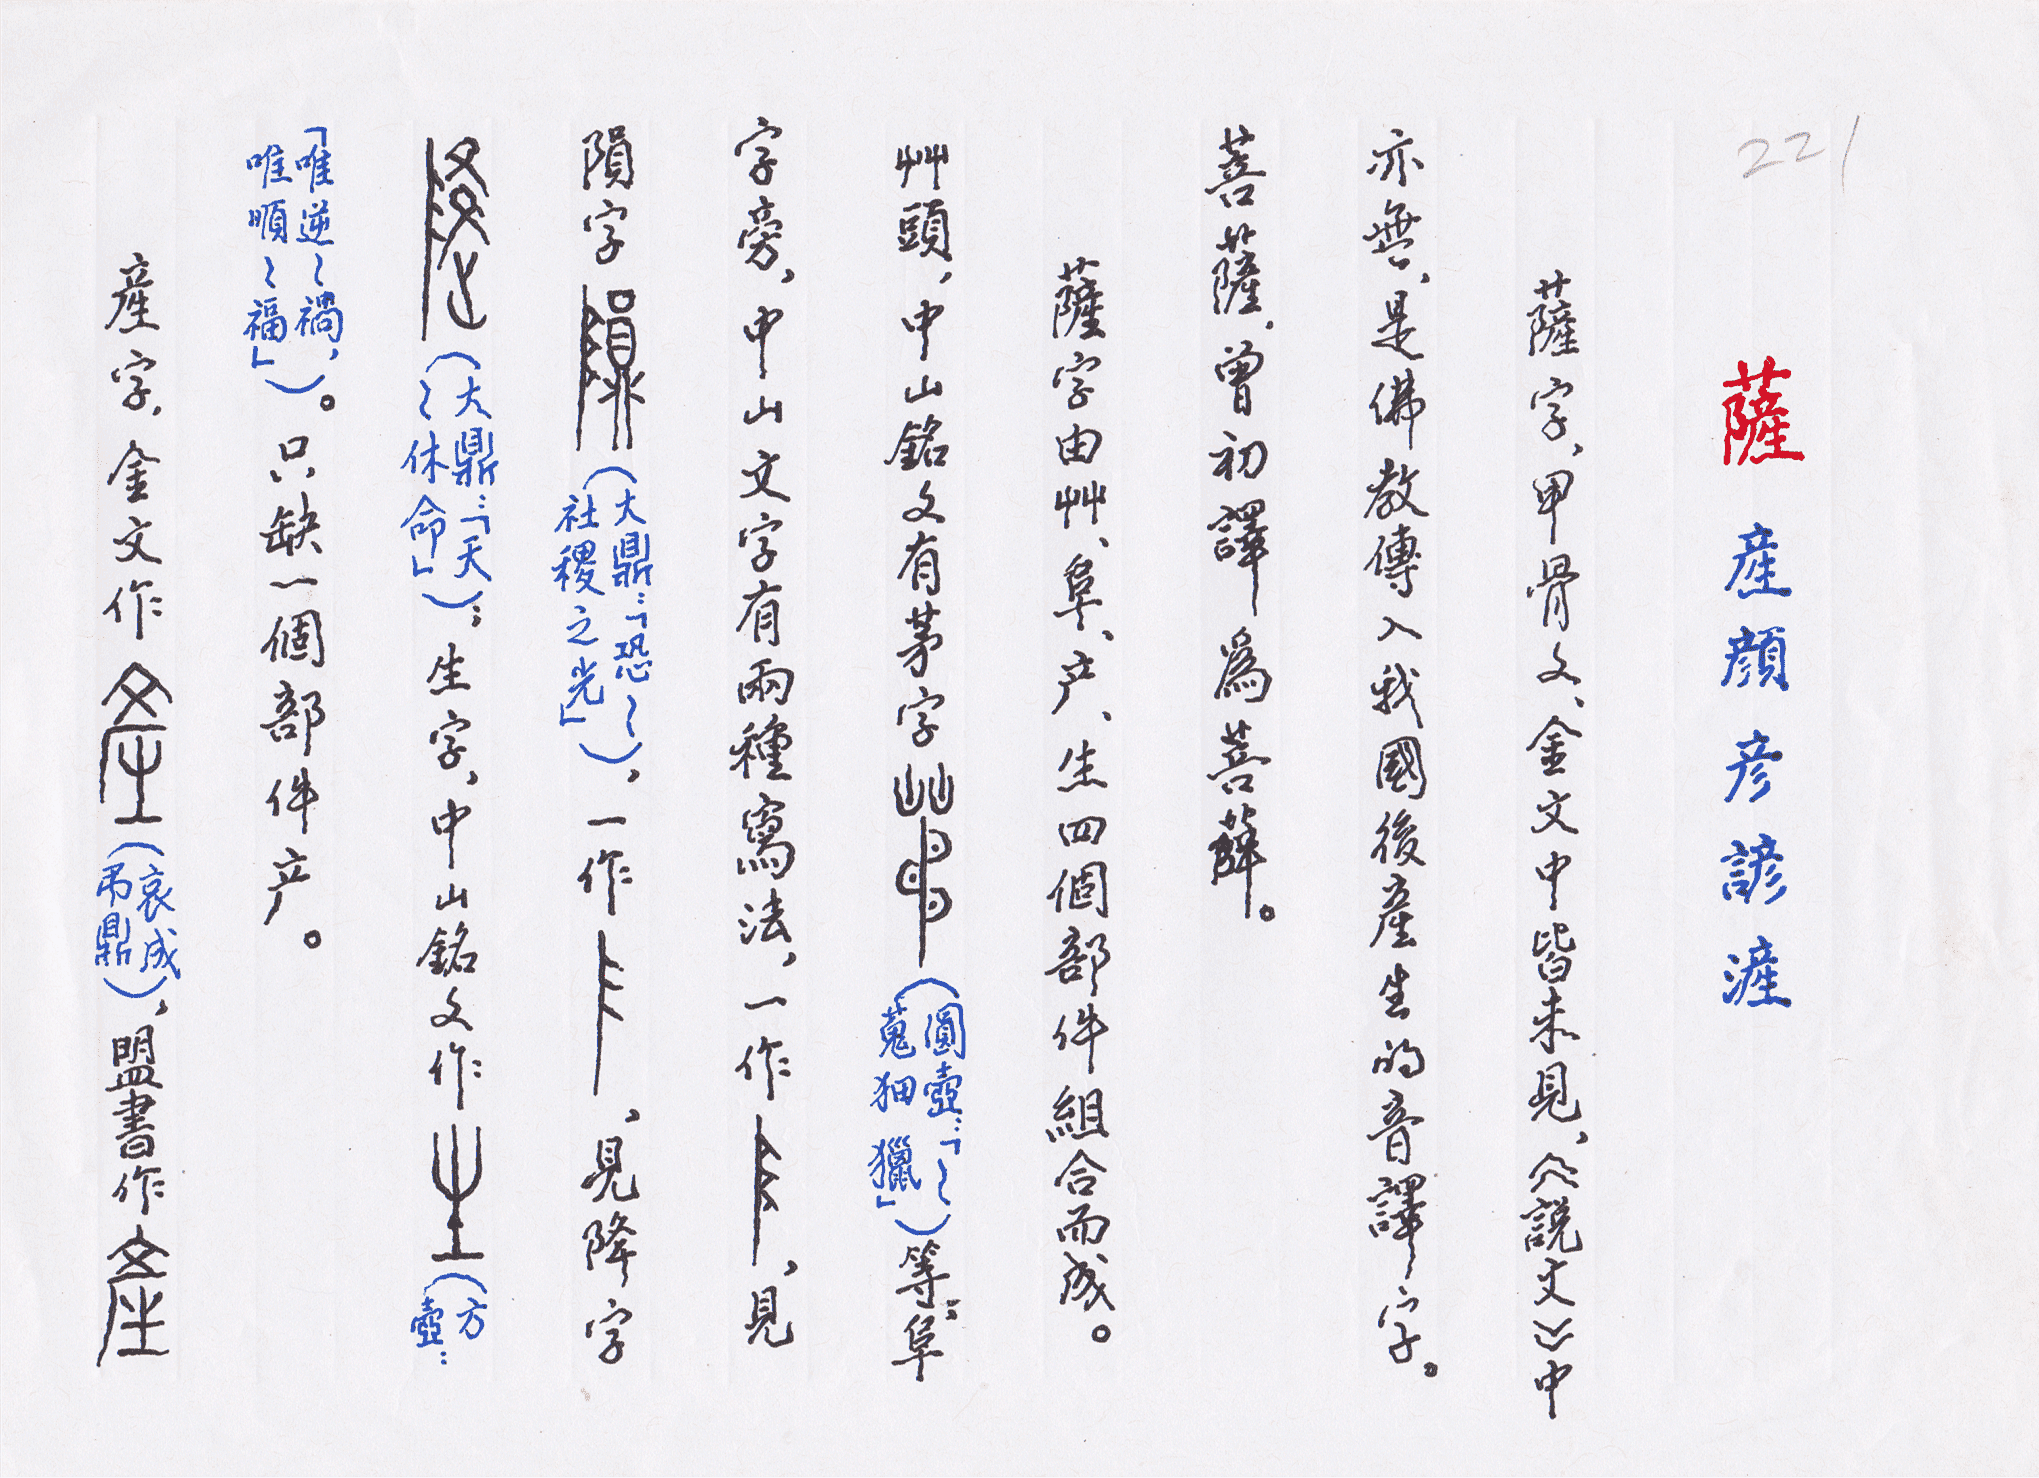 221
薩 産 顔 彦 諺 滻
薩字，甲骨文、金文中皆未見，《説文》中
亦無，是佛教傳入我國後産生的音譯字。
菩薩，曾初譯爲菩薛。
薩字由艸、阜、产、生四個部件組合而成。
艸頭，中山銘文有茅字（圓壺：「〜蒐狃獵」）等；阜
字旁，中山文字有兩種寫法，一作，見
隕字（大鼎：「恐〜社稷之光」），一作，見降字
（大鼎：「天〜休命」）；生字，中山銘文作（方壺：
「唯逆〜禍，唯順〜福」）。只缺一個部件产。
産字，金文作（哀成弔鼎），盟書作